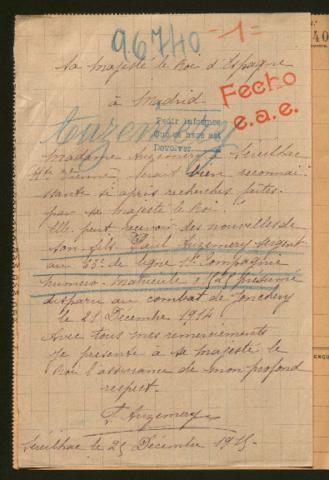 96740
-1=
40
Sa majesté le Roi d'Espagne
à Madrid
Fecho
e.a.e.
Auzemery
Pedir informes
Que et base est
Devolver
madame Auzemery Séreilhac
Hte Vienne serait bien reconnai-
sante si après recherches faites
par sa majesté le Roi
Elle peut recevoir des nouvelles de
son fils Paul Auzemery sergent
au 63e de ligne 1re Compagnie
numero matricule présumé
disparu au combat de Jonchery
le 21 Décembre 1914
Avec tous mes remerciements
Je presente a sa majesté le
Roi l'assurance de mon profond
respect.
Auzemery
Séreilhac le 25 Décembre 1915.